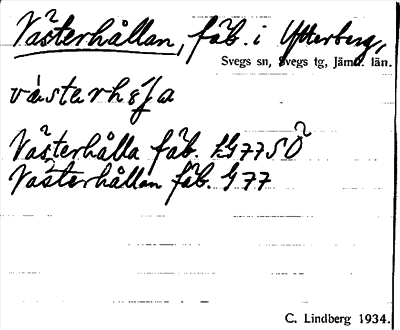 Västerhållan, fäb. i Ytterberg,
Svegs sn, Svegs tg, Jämtl. län.
Västerhålla fäb. EG77SO
Västerhållan fäb. G77
C. Lindberg 1934.